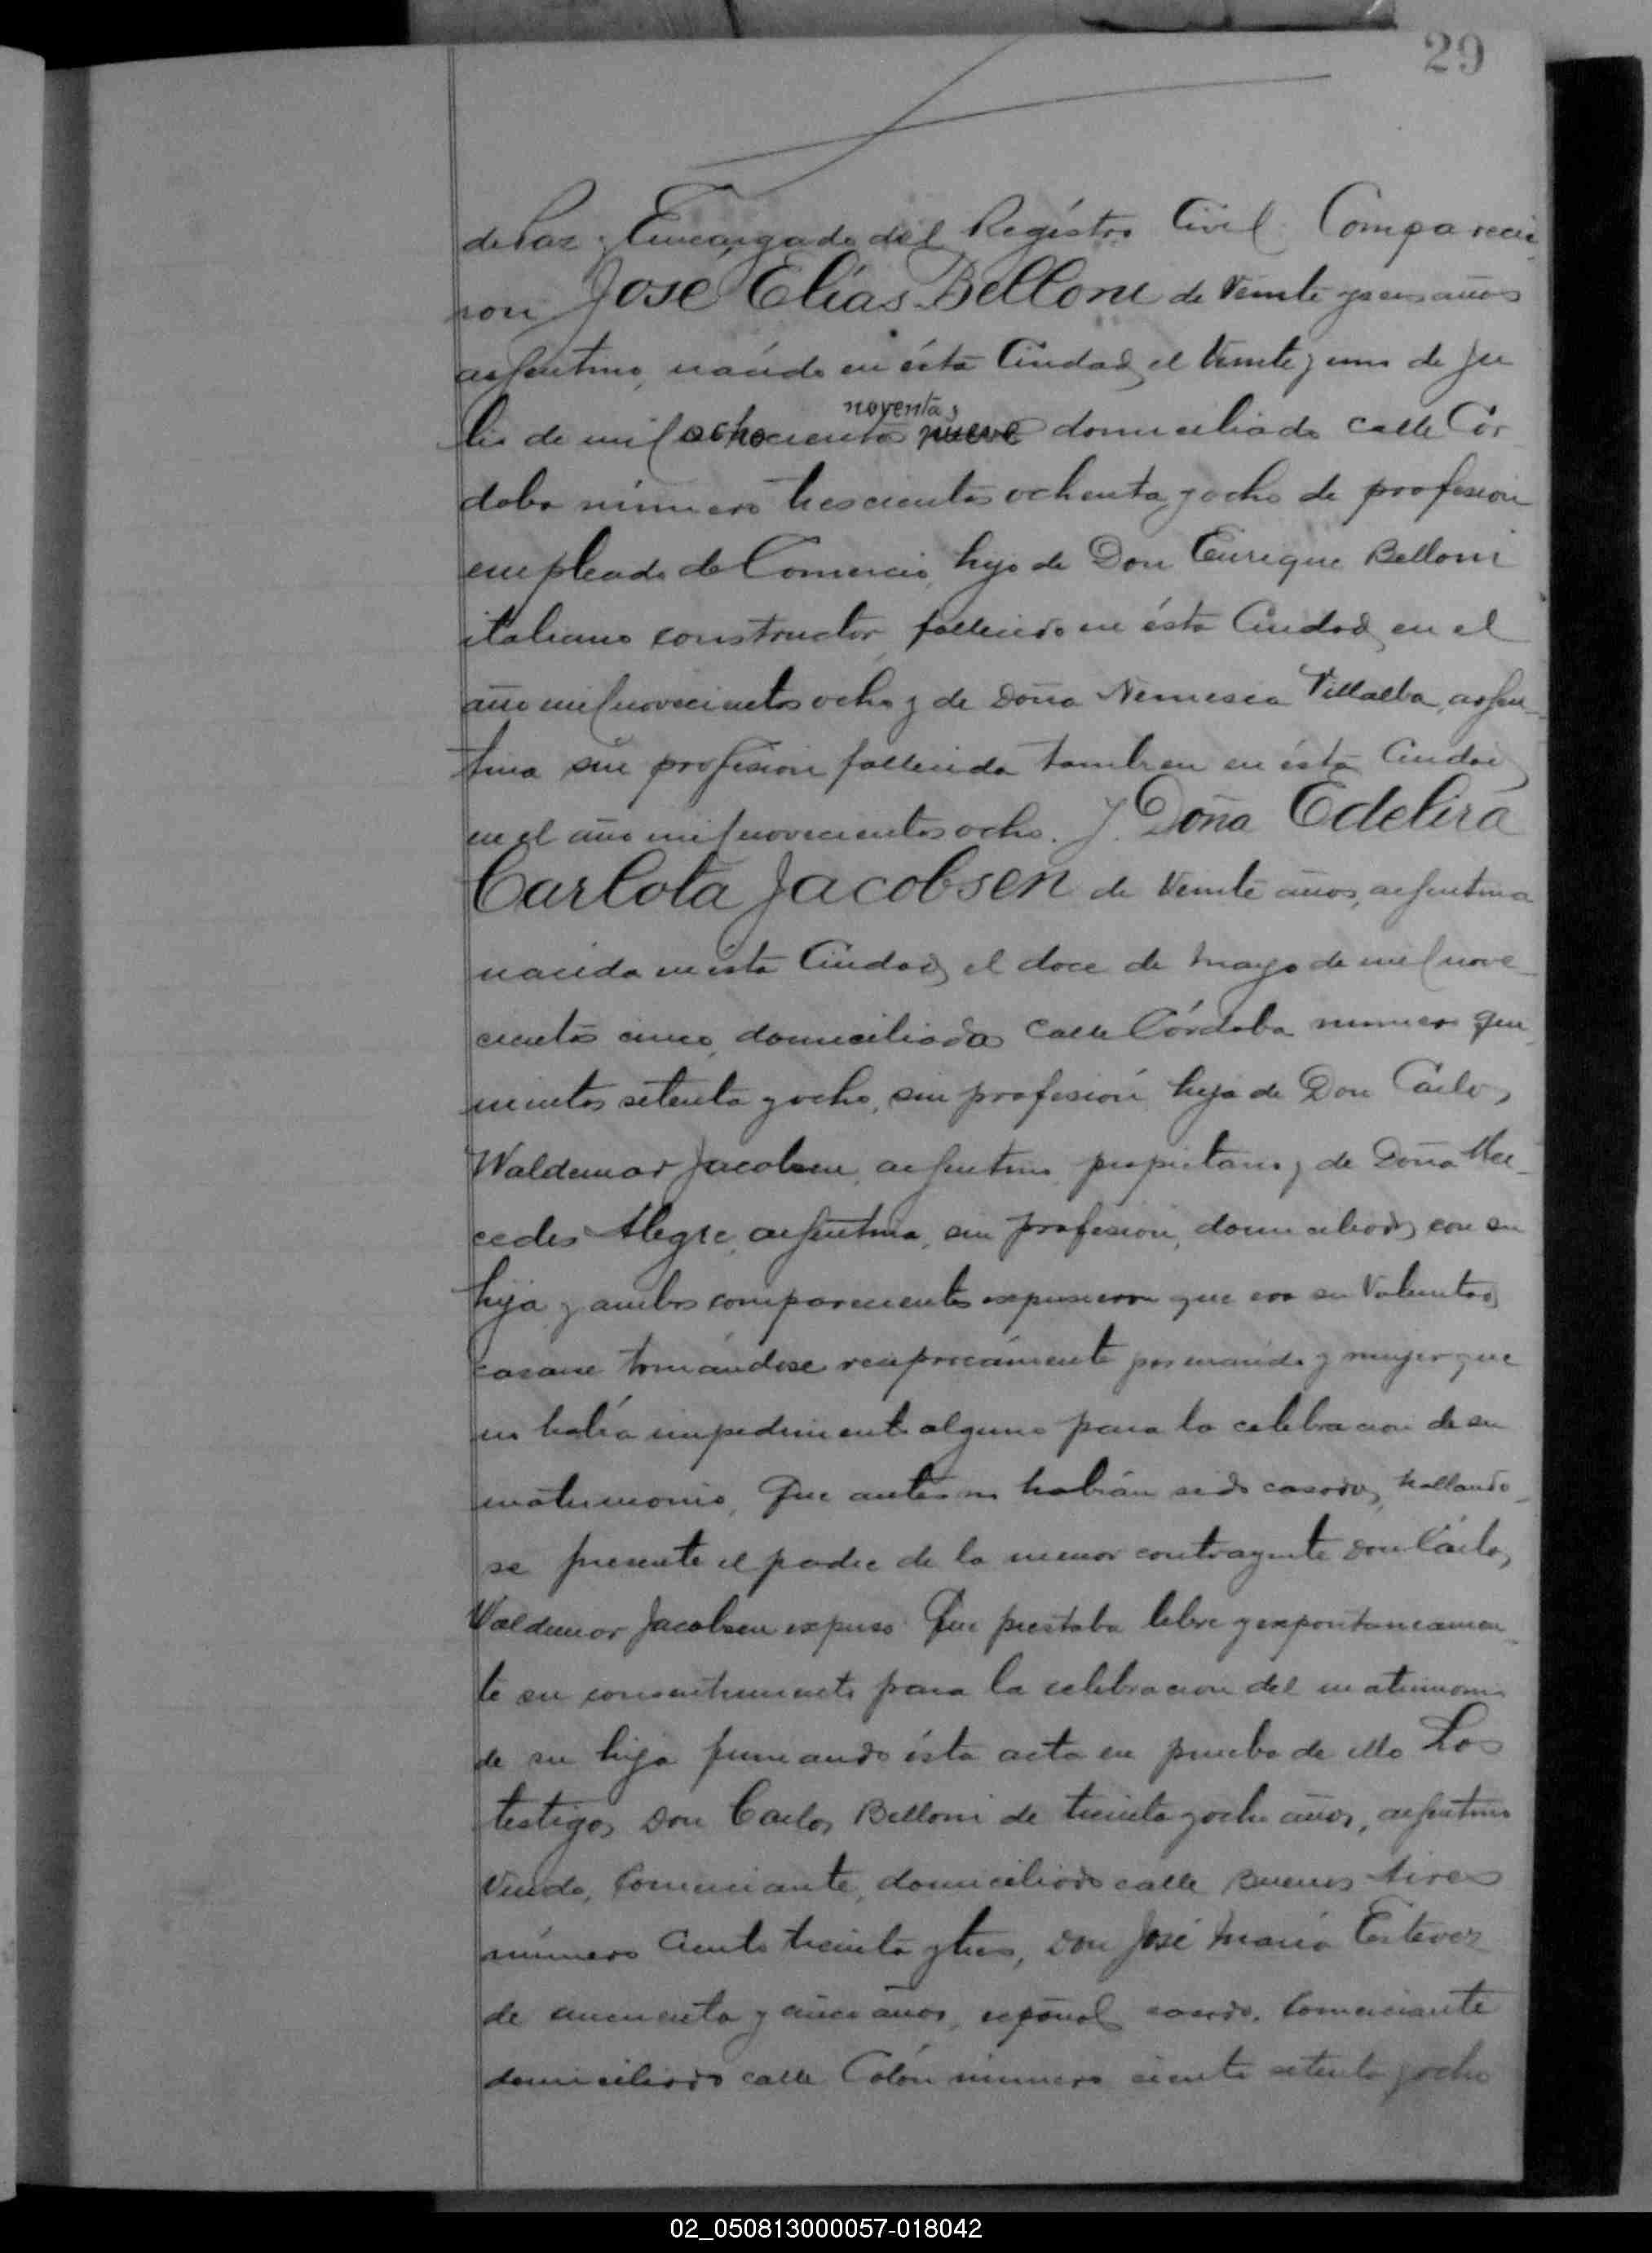 29
de Paz y Encargado del Registro Civil Comparecie
ron José Elías Belloni de Veinte y seis años
argentino, nacido en ésta Ciudad el veinte y uno de Ju
lio de mil ochocientos noventa y nueve domiciliado calle Cór
doba número trescientos ochenta y ocho de profesion
empleado de Comercio, hijo de Don Enrique Belloni
italiano constructor, fallecido en ésta Ciudad en el
año mil novecientos ocho y de Doña Nemesia Villalba, argen-
tina sin profesion fallecida tambien en ésta Ciudad
en el año mil novecientos ocho. Y Doña Edelira
Carlota Jacobsen de Veinte años, argentina
nacida en ésta Ciudad el doce de Mayo de mil nove-
cientos cinco, domiciliada Calle Córdoba numero qui
nientos setenta y ocho, sin profesión hija de Don Carlos
Waldemar Jacobsen, argentino propietario y de Doña Mer-
cedes Alegre, argentina, sin profesion, domiciliados con su
hija y ambos comparecientes expusieron que era su Voluntad
casarse tomándose reciprocámente por marido y mujer que
no había impedimento alguno para la celebracion de su
matrimonio, Que antes no habían sido casados, hallando-
se presente el padre de la menor contrayente Don Cárlos
Waldemar Jacobsen expuso Que prestaba libre y expontaneamen-
te su consentimiento para la celebracion del matrimonio
de su hija firmando ésta acta en prueba de ello Los
testigos Don Carlos Belloni de treinta y ocho años, argentino
Viudo, Comerciante, domiciliado calle Buenos Aires
número Ciento treinta y tres, Don José María Estevez
de cincuenta y cinco años, español casado, Comerciante
domiciliado calle Colón número ciento setenta y ocho
02_050813000057-018042